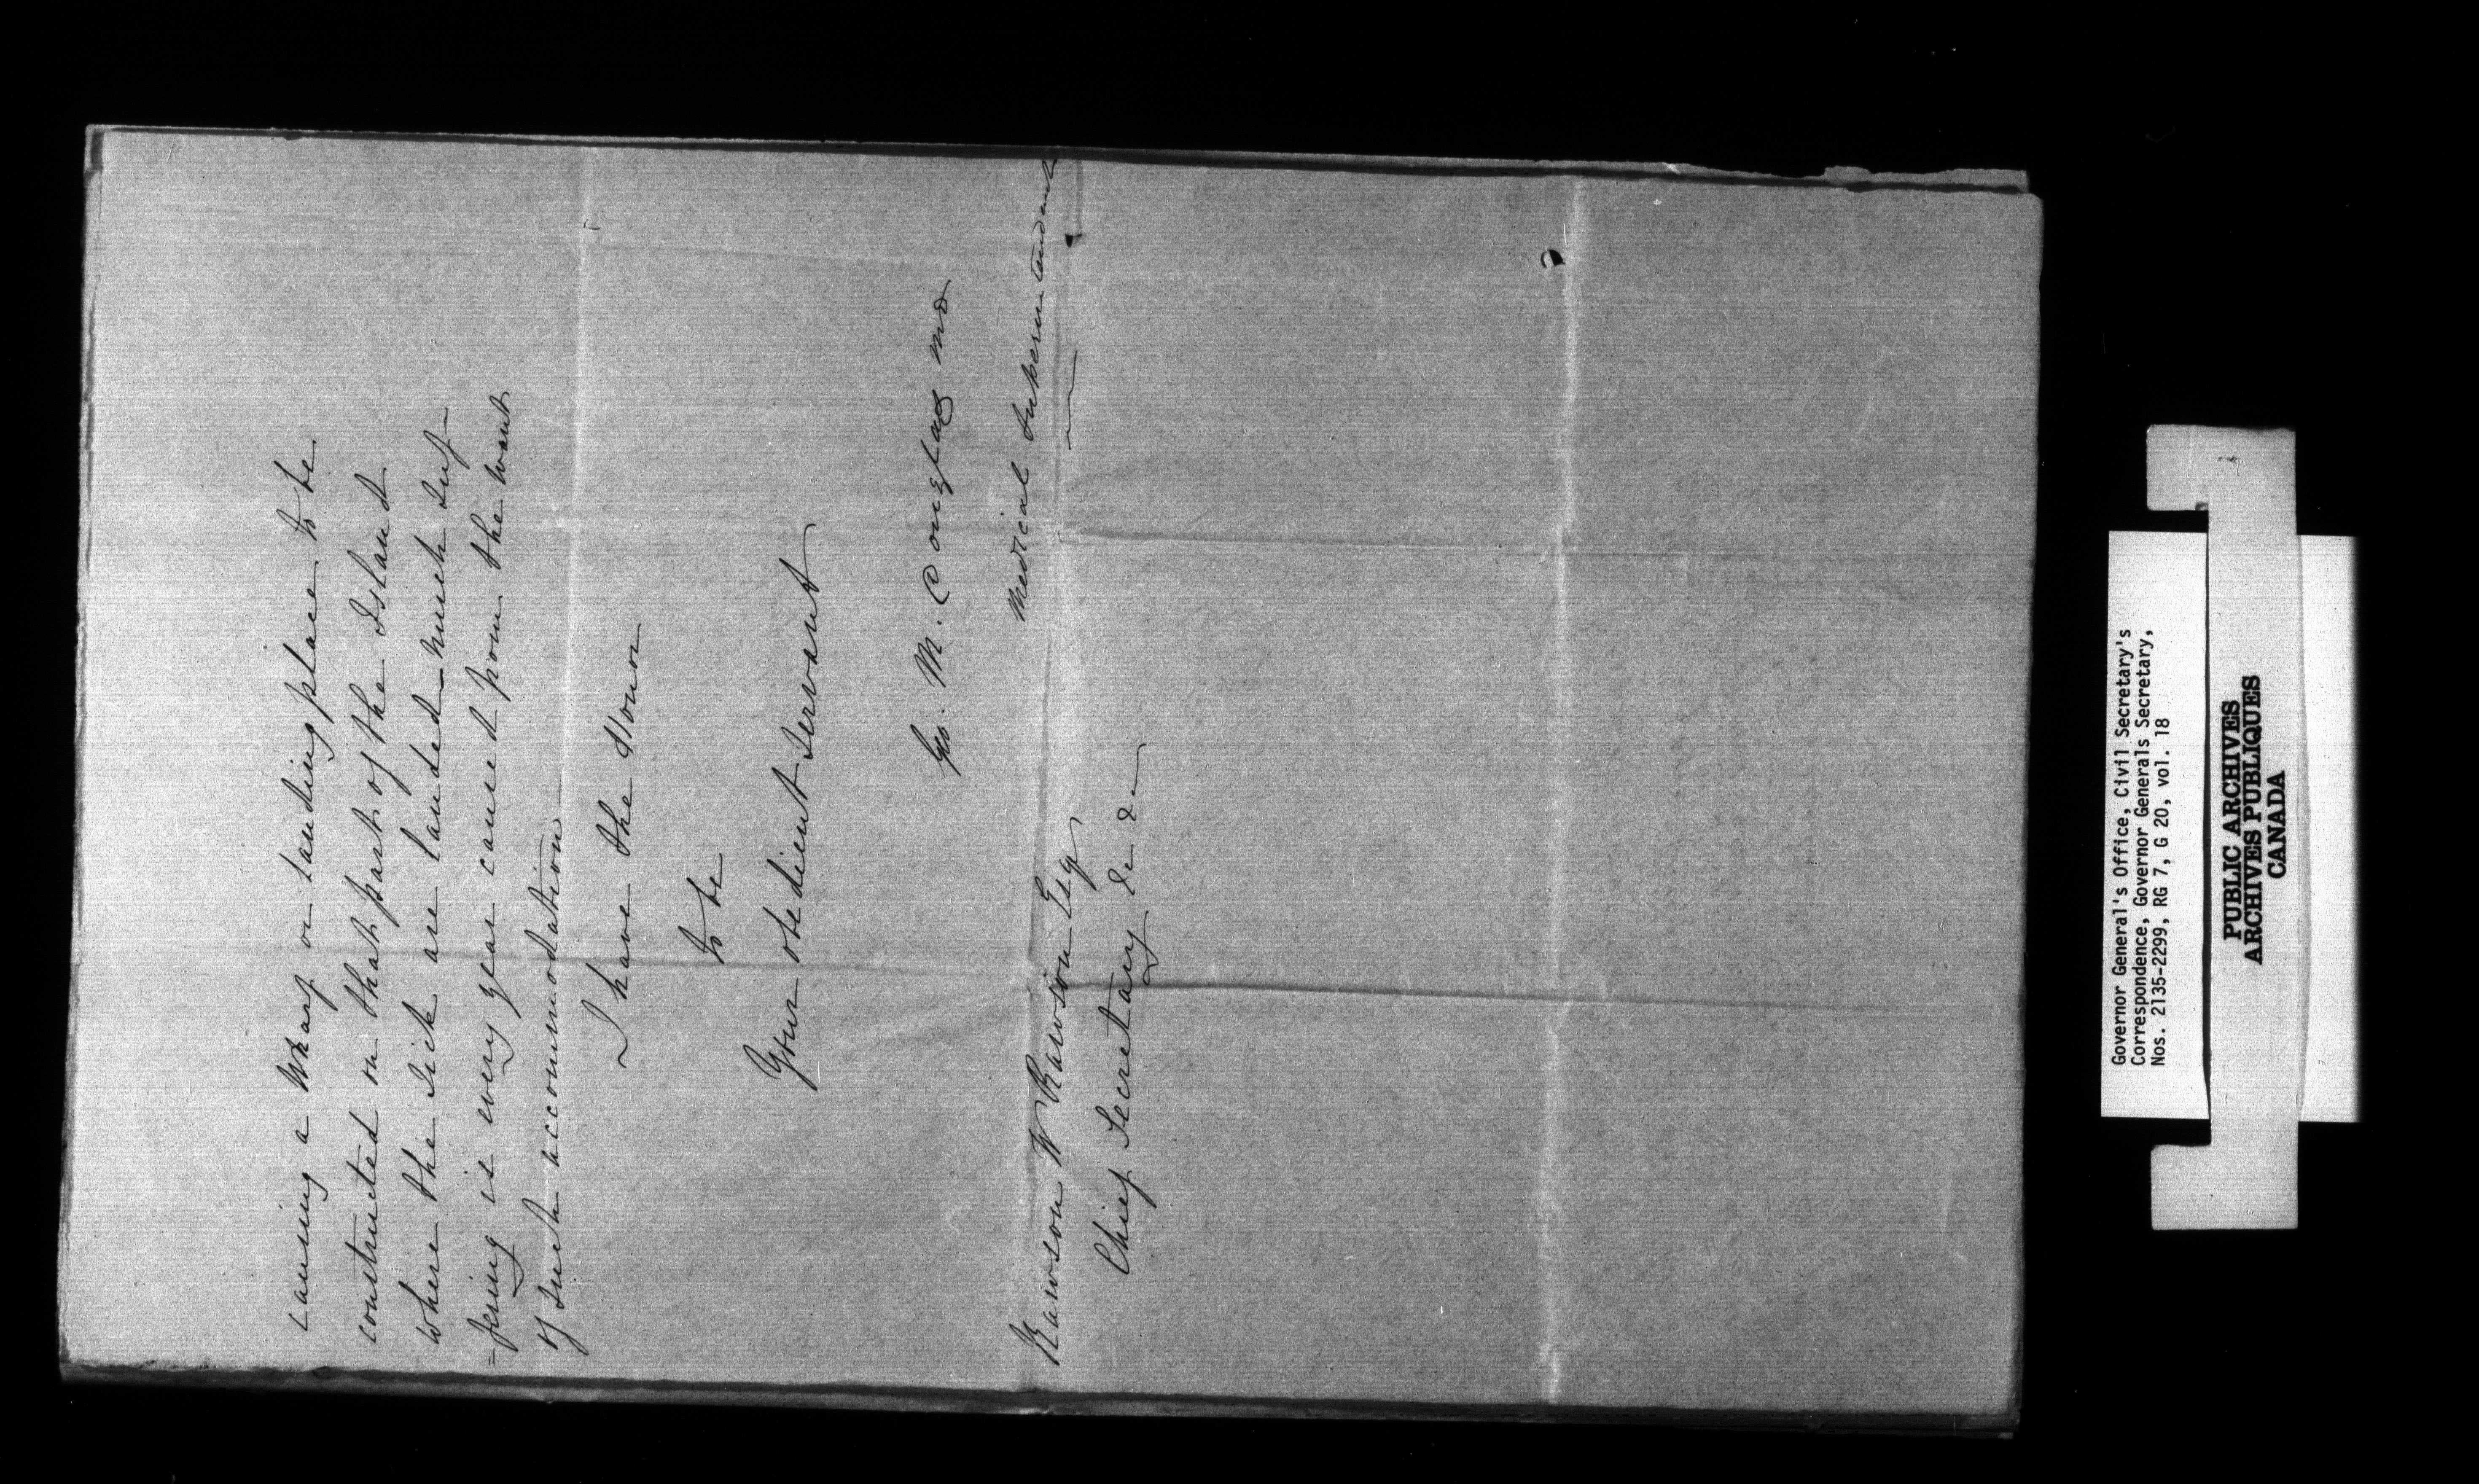 causing a Wharf or landing place to be
constructed on that part of the Island
where the sick are landed - Much suf-
=fering is every year caused from the want
of such accommodation -
I have the Honor
to be
Your obedient Servant
Geo. M. Douglas MD
Medical Superintendant
Rawson W Rawson Esqr
Chief Secretary &c &c
Governor General's Office, Civil Secretary's
Correspondence, Governor Generals Secretary,
Nos. 2135-2299, RG 7, G 20, vol. 18
PUBLIC ARCHIVES
ARCHIVES PUBLIQUES
CANADA